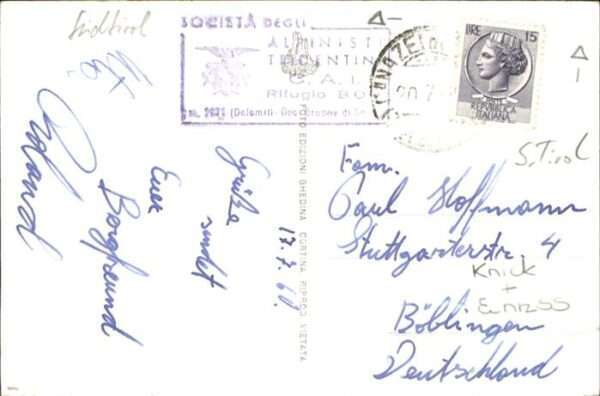 Südtirol
SOCIETÀ DEGLI
ALPINISTI
TRIDENTINI
C.A.I.
Rifugio Bo
(Dolomiti - Gruppo
CANAZEI
20.7.
LIRE 15
REPUBBLICA ITALIANA
S. Tirol
Grüße
sendet
Euer
Bergfreund
Roland
17.7.60.
FOTO EDIZIONI GHEDINA CORTINA RIPROD. VIETATA
Fam.
Paul Hoffmann
Stuttgarterstr. 4
Knick
+
Böblingen
Deutschland